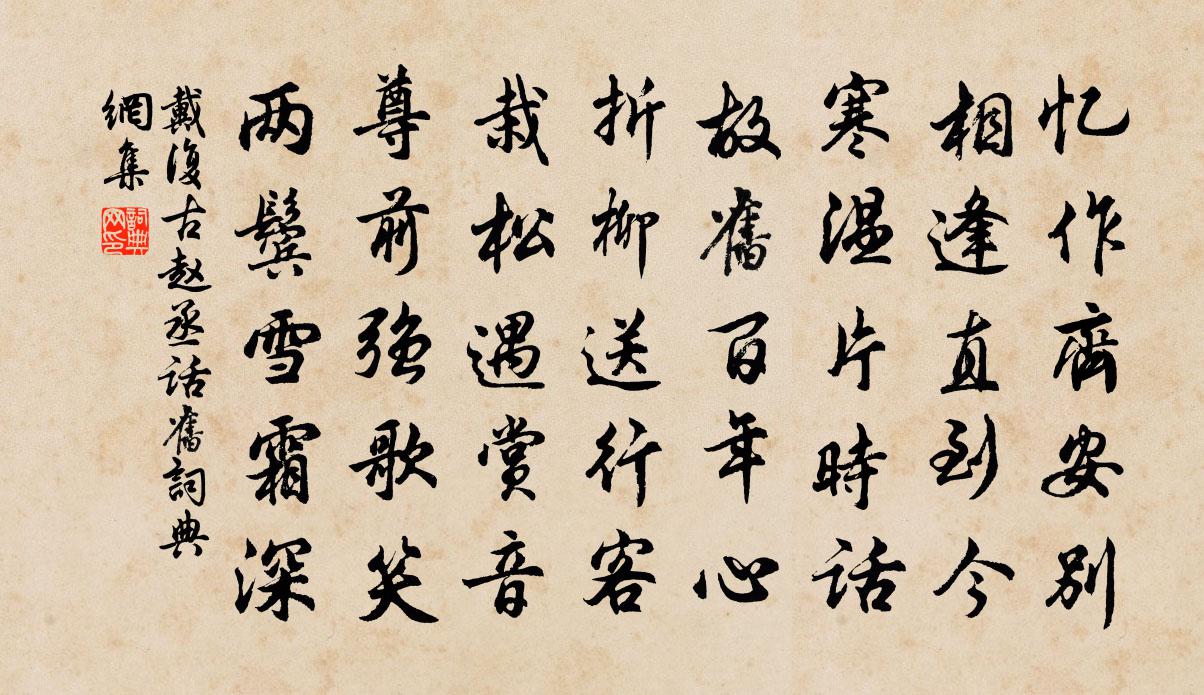 忆作齊安别
相逢直到今
寒温片時話
故舊百年心
折柳送行客
栽松遇赏音
尊前强歌笑
两鬓雪霜深
戴復古赵丞話舊詞典
網集
詞典
网印